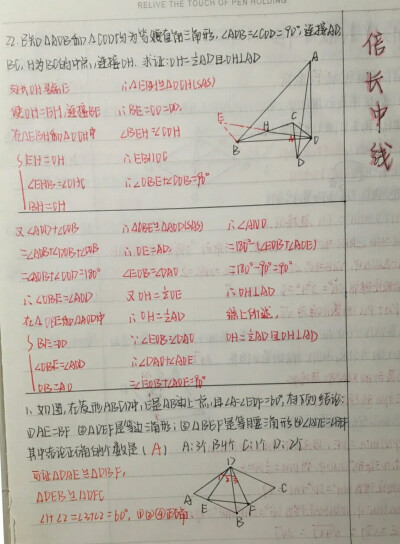 RELIVE THE TOUCH OF PEN HOLDING
倍长中线
22. 已知△AOB和△COD均为等腰直角三角形，∠AOB=∠COD=90°，连接AD，
BC，H为BC的中点，连接OH. 求证：OH=½AD且OH⊥AD
∴△EBH≌△OCH(SAS)
使OH=EH，连接BE
∴BE=OC=OD
在△EBH和△OCH中
∠BEH=∠COH
EH=OH
∴EB∥OC
∴∠OBE+∠COB=180°
BH=CH
又∠AOD+∠COB
∴△OBE≌△AOD(SAS)
∴∠AND
=∠AOB+∠COD=180°
∠EOB=∠DAO
=180°-90°=90°
∴∠OBE=∠AOD
又OH=½OE
∴OH⊥AD
在△OBE和△AOD中
∴OH=½AD
综上所述,
BE=OD
∴∠EOB=∠DAO
OH=½AD且OH⊥AD
∠OBE=∠AOD
∴∠DAO+∠AOE
OB=AO
=∠EOB+∠AOE=90°
1. 如图，在菱形ABCD中，E是AB边上一点，且∠A=∠EDF=60°，有下列结论：
①AE=BF ②△DEF是等边三角形；③△BEF是等腰三角形④∠ADE=∠BEF
其中结论正确的个数是（A） A：3个 B：4个 C：1个 D：2个
可证△DAE≌△DBF，
△DEB≌△DFC
∠1+∠2=∠3+∠2=60°，①②④正确